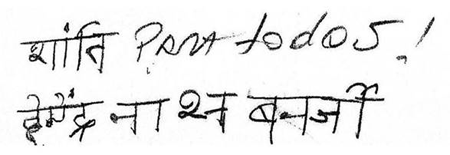 शांति PARA todos!
हेमेंद्र नाथ बनर्जी